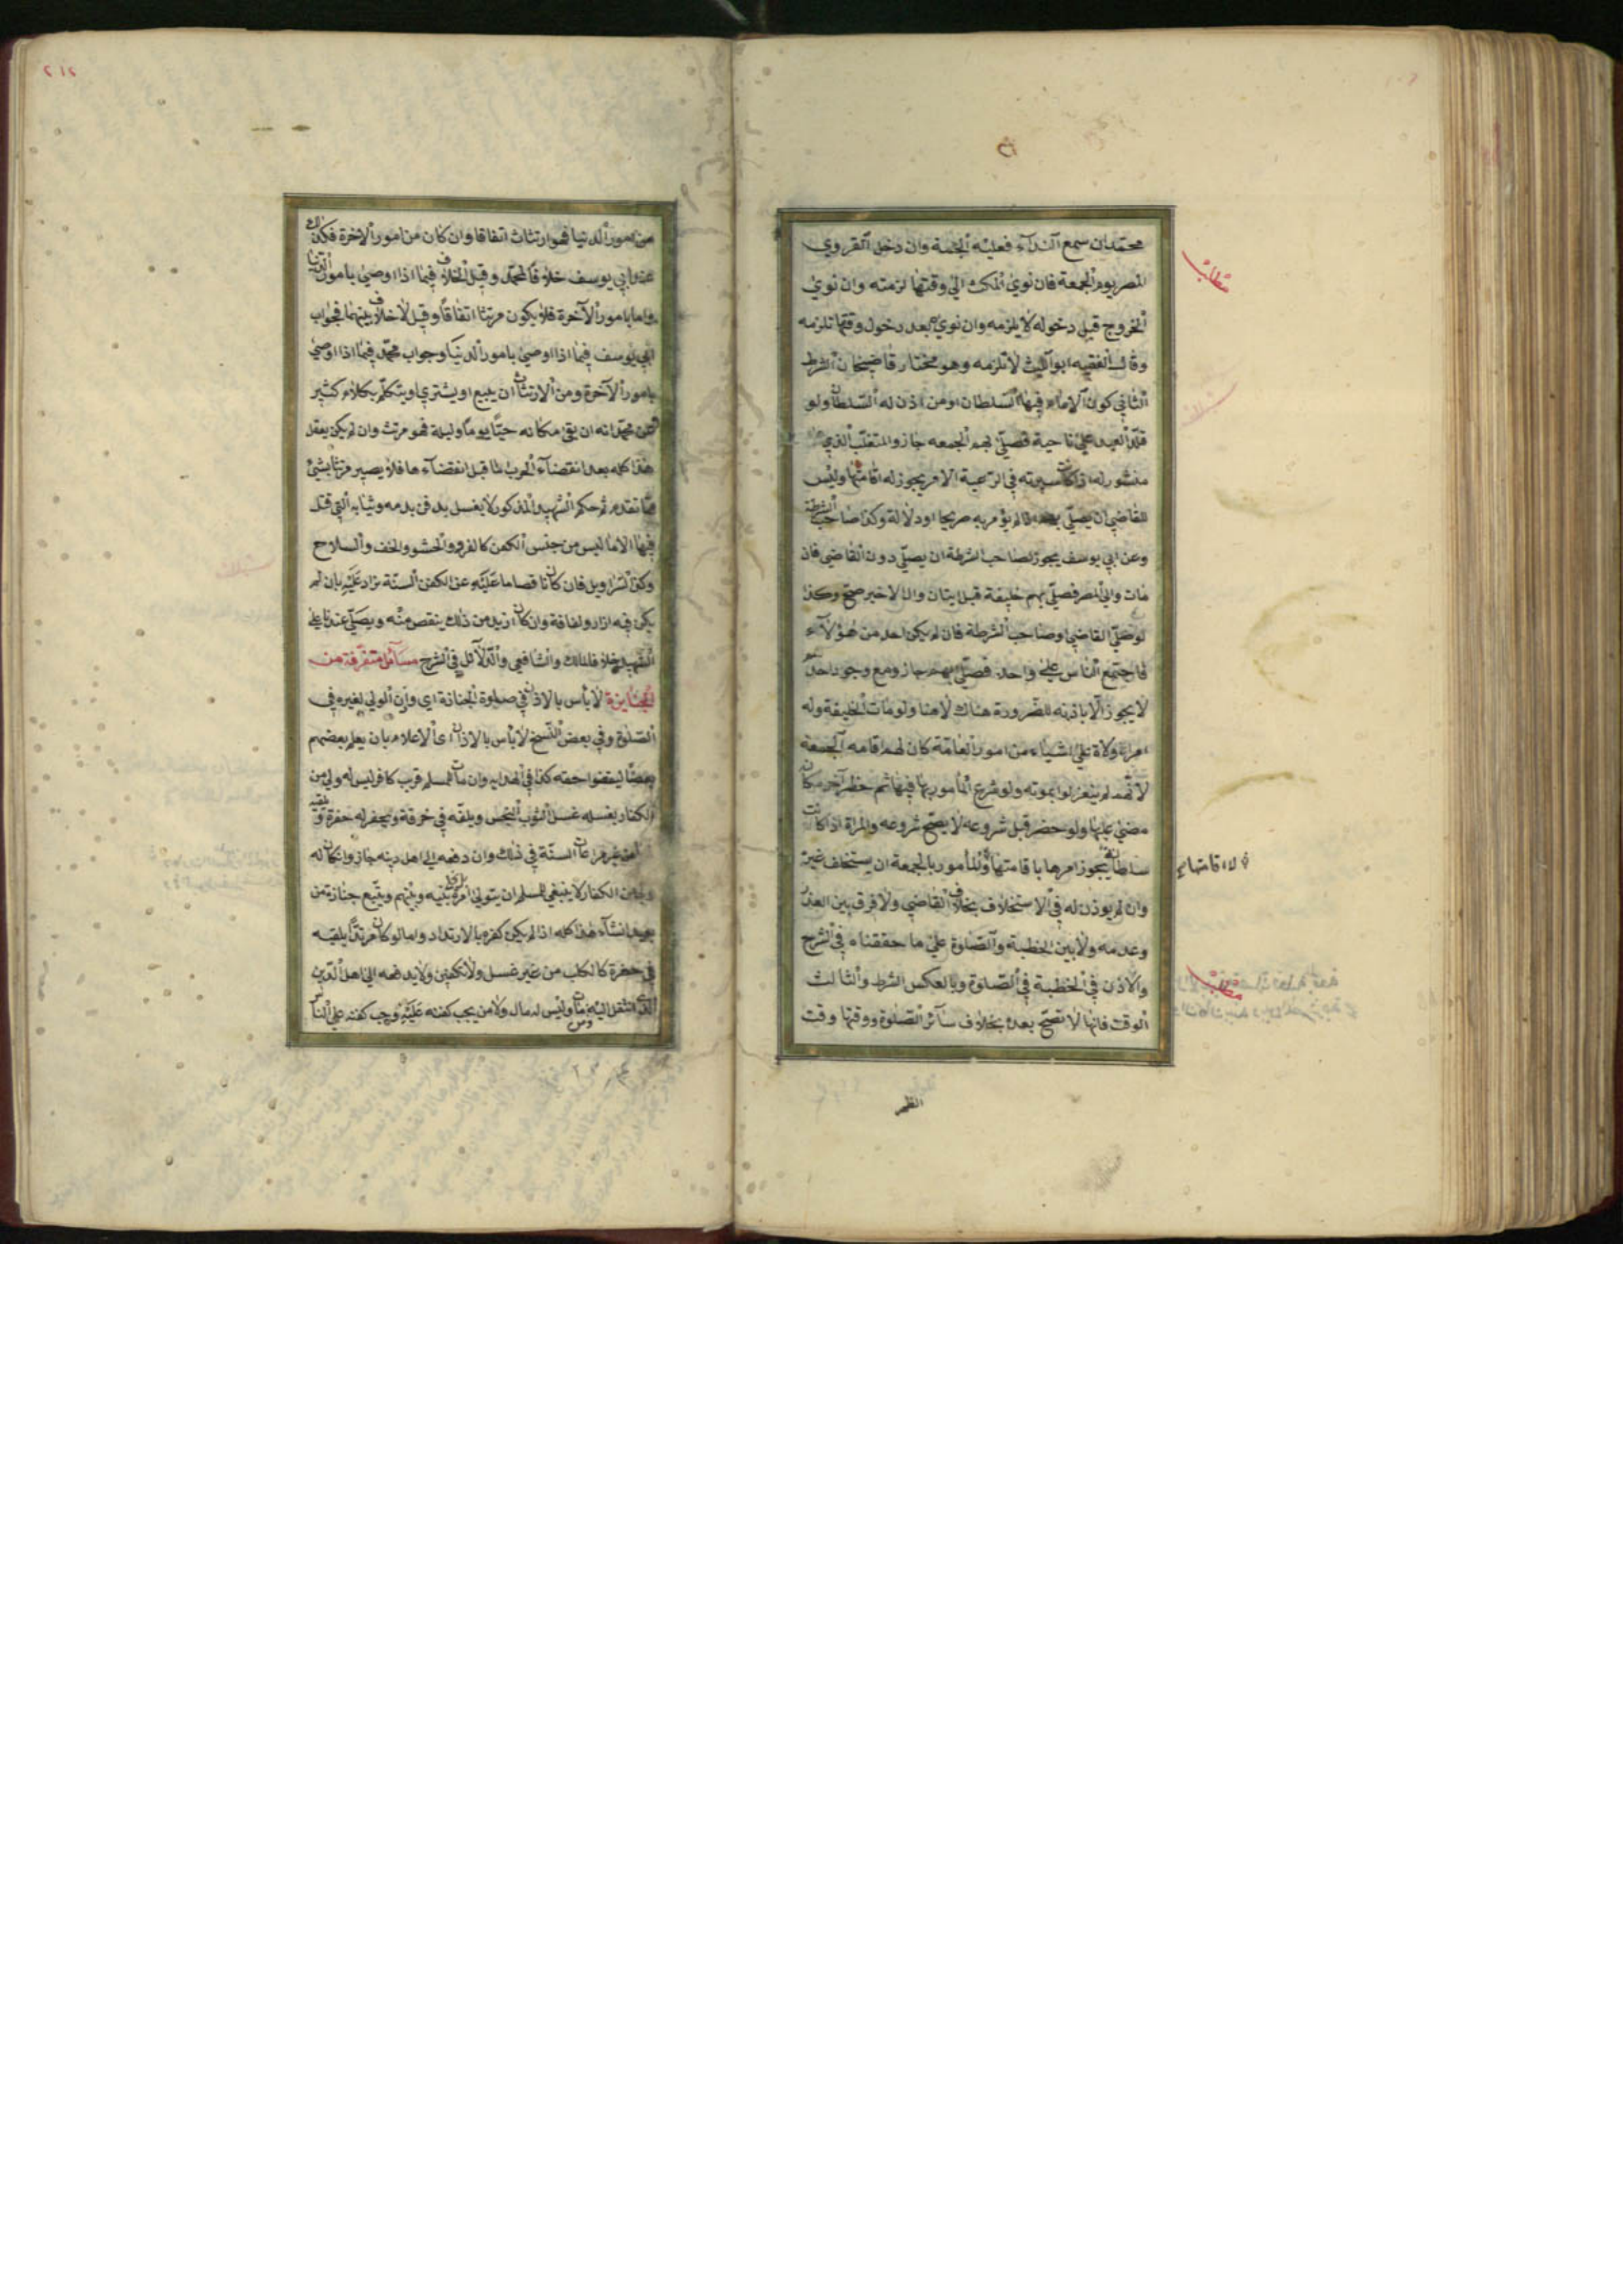 محمد ان سمع النداء فعليه الجمعة وان دخل القروي
المصر يوم الجمعة فان نوى المكث الى وقتها لزمته وان نوى
الخروج قبل دخوله لا يلزمه وان نوى بعد دخول وقتها تلزمه
وقال الفقيه ابو الليث لا تلزمه وهو مختار قاضيخان الشرط
الثاني كون الامام فيها السلطان او من اذن له السلطان ولو
قلد العبد على ناحية فصلى بهم الجمعه جاز والمتغلب الذي لا
منشور له اذا كانت سيرته في الرعية الامر يجوز له اقامتها وليس
للقاضي ان يصلي بهم اذا لم يؤمر به صريحا او دلالة وكذا صاحب الشرطة
وعن ابي يوسف يجوز لصاحب الشرطة ان يصلي دون القاضي فان
مات والي المصر فصلى بهم خليفة قبل اتيان والـ الاخير صح وكذا
لو صلى القاضي او صاحب الشرطة فان لم يكن احد من هؤلاء
فاجتمع الناس على واحد فصلى بهم جاز ومع وجود احدهم
لا يجوز الا باذنه للضرورة هناك لا هنا ولو مات الخليفة وله
امراء ولاة على اشياء من امور العامة كان لهم اقامه الجمعة
لانهم لم ينعزلوا بموته ولو شرع المأمور بها فيها ثم حضر آخر مكانه
مضى عليها ولو حضر قبل شروعه لا يصح شروعه والمراة اذا كانت
سلطانة يجوز امرها باقامتها وللمأمور بالجمعة ان يستخلف غيره
لا اقامتها
وان لم يوذن له في الاستخلاف بخلاف القاضي ولا فرق بين العذر
وعدمه ولا بين الخطبة والصلوة على ما حققناه في الشرح
والاذن في الخطبة في الصلوة وبالعكس الشرط والثالث
الوقت فانها لا تصح بعده بخلاف سائر الصلوة ووقتها وقت
الظهر
مطلب
مطلب
٢١٢
من امور الدنيا فهو ارتثاث اتفاقا وان كان من امور الاخرة فكذلك
عند ابي يوسف خلافا لمحمد وقيل الخلاف فيما اذا اوصى بامور الدنيا
واما بامور الآخرة فلا يكون مرتثا اتفاقا وقيل لا خلاف بينهما فجواب
ابي يوسف فيما اذا اوصى بامور الدنيا وجواب محمد فيما اذا اوصى
بامور الآخرة ومن الارتثاث ان يبيع او يشتري او يتكلم بكلام كثير
وعن محمد انه ان بقي مكانه حيا يوما وليلة فهو مرتث وان لم يكن يعقل
هذا كله بعد انقضاء الحرب اما قبل انقضاءها فلا يصير مرتثا بشئ
مما تقدم ثم حكم الشهيد المذكور لا يغسل يدفن بدمه وثيابه التي قتل
فيها الا ما ليس من جنس الكفن كالفرو والحشو والخف والسلاح
وكذا السراويل فان كان ناقصا ما عليه عن الكفن السنة يزاد عليه بان لم
يكن فيه ازار ولفافة وان كان ازيد من ذلك ينقص منه ويصلى عندنا على
الشهيد خلافا لمالك والشافعي والدلائل في الشرح مسائل متفرقة من
الجنايزة لا بأس بالاذن في صلوة الجنازة اى واذن الولي لغيره في
الصلوة وفي بعض النسخ لا بأس بالاذان اى الاعلام بان يعلم بعضهم
بعضا ليقضوا حقه كذا في الهدايه وان مات للمسلم قريب كافر ليس له ولي من
الكفار يغسله غسل الثوب النجس ويلفه في خرقة ويحفر له حفرة ويلقيه
من غير مراعات السنة في ذلك وان دفعه الى اهل دينه جاز وان كان له
ولي من الكفار لا ينبغي للمسلم ان يتولى امره بل يخلي بينه وبينهم ويتبع جنازته من
بعيد ان شاء هذا كله اذا لم يكن كفره بالارتداد واما لو كان مرتدا يلقيه
في حفرة كالكلب من غير غسل ولا تكفين ولا يدفعه الى اهل الدين
الذي انتقل اليه ومن مات وليس له مال ولا من يجب كفنه عليه وجب كفنه على الناس